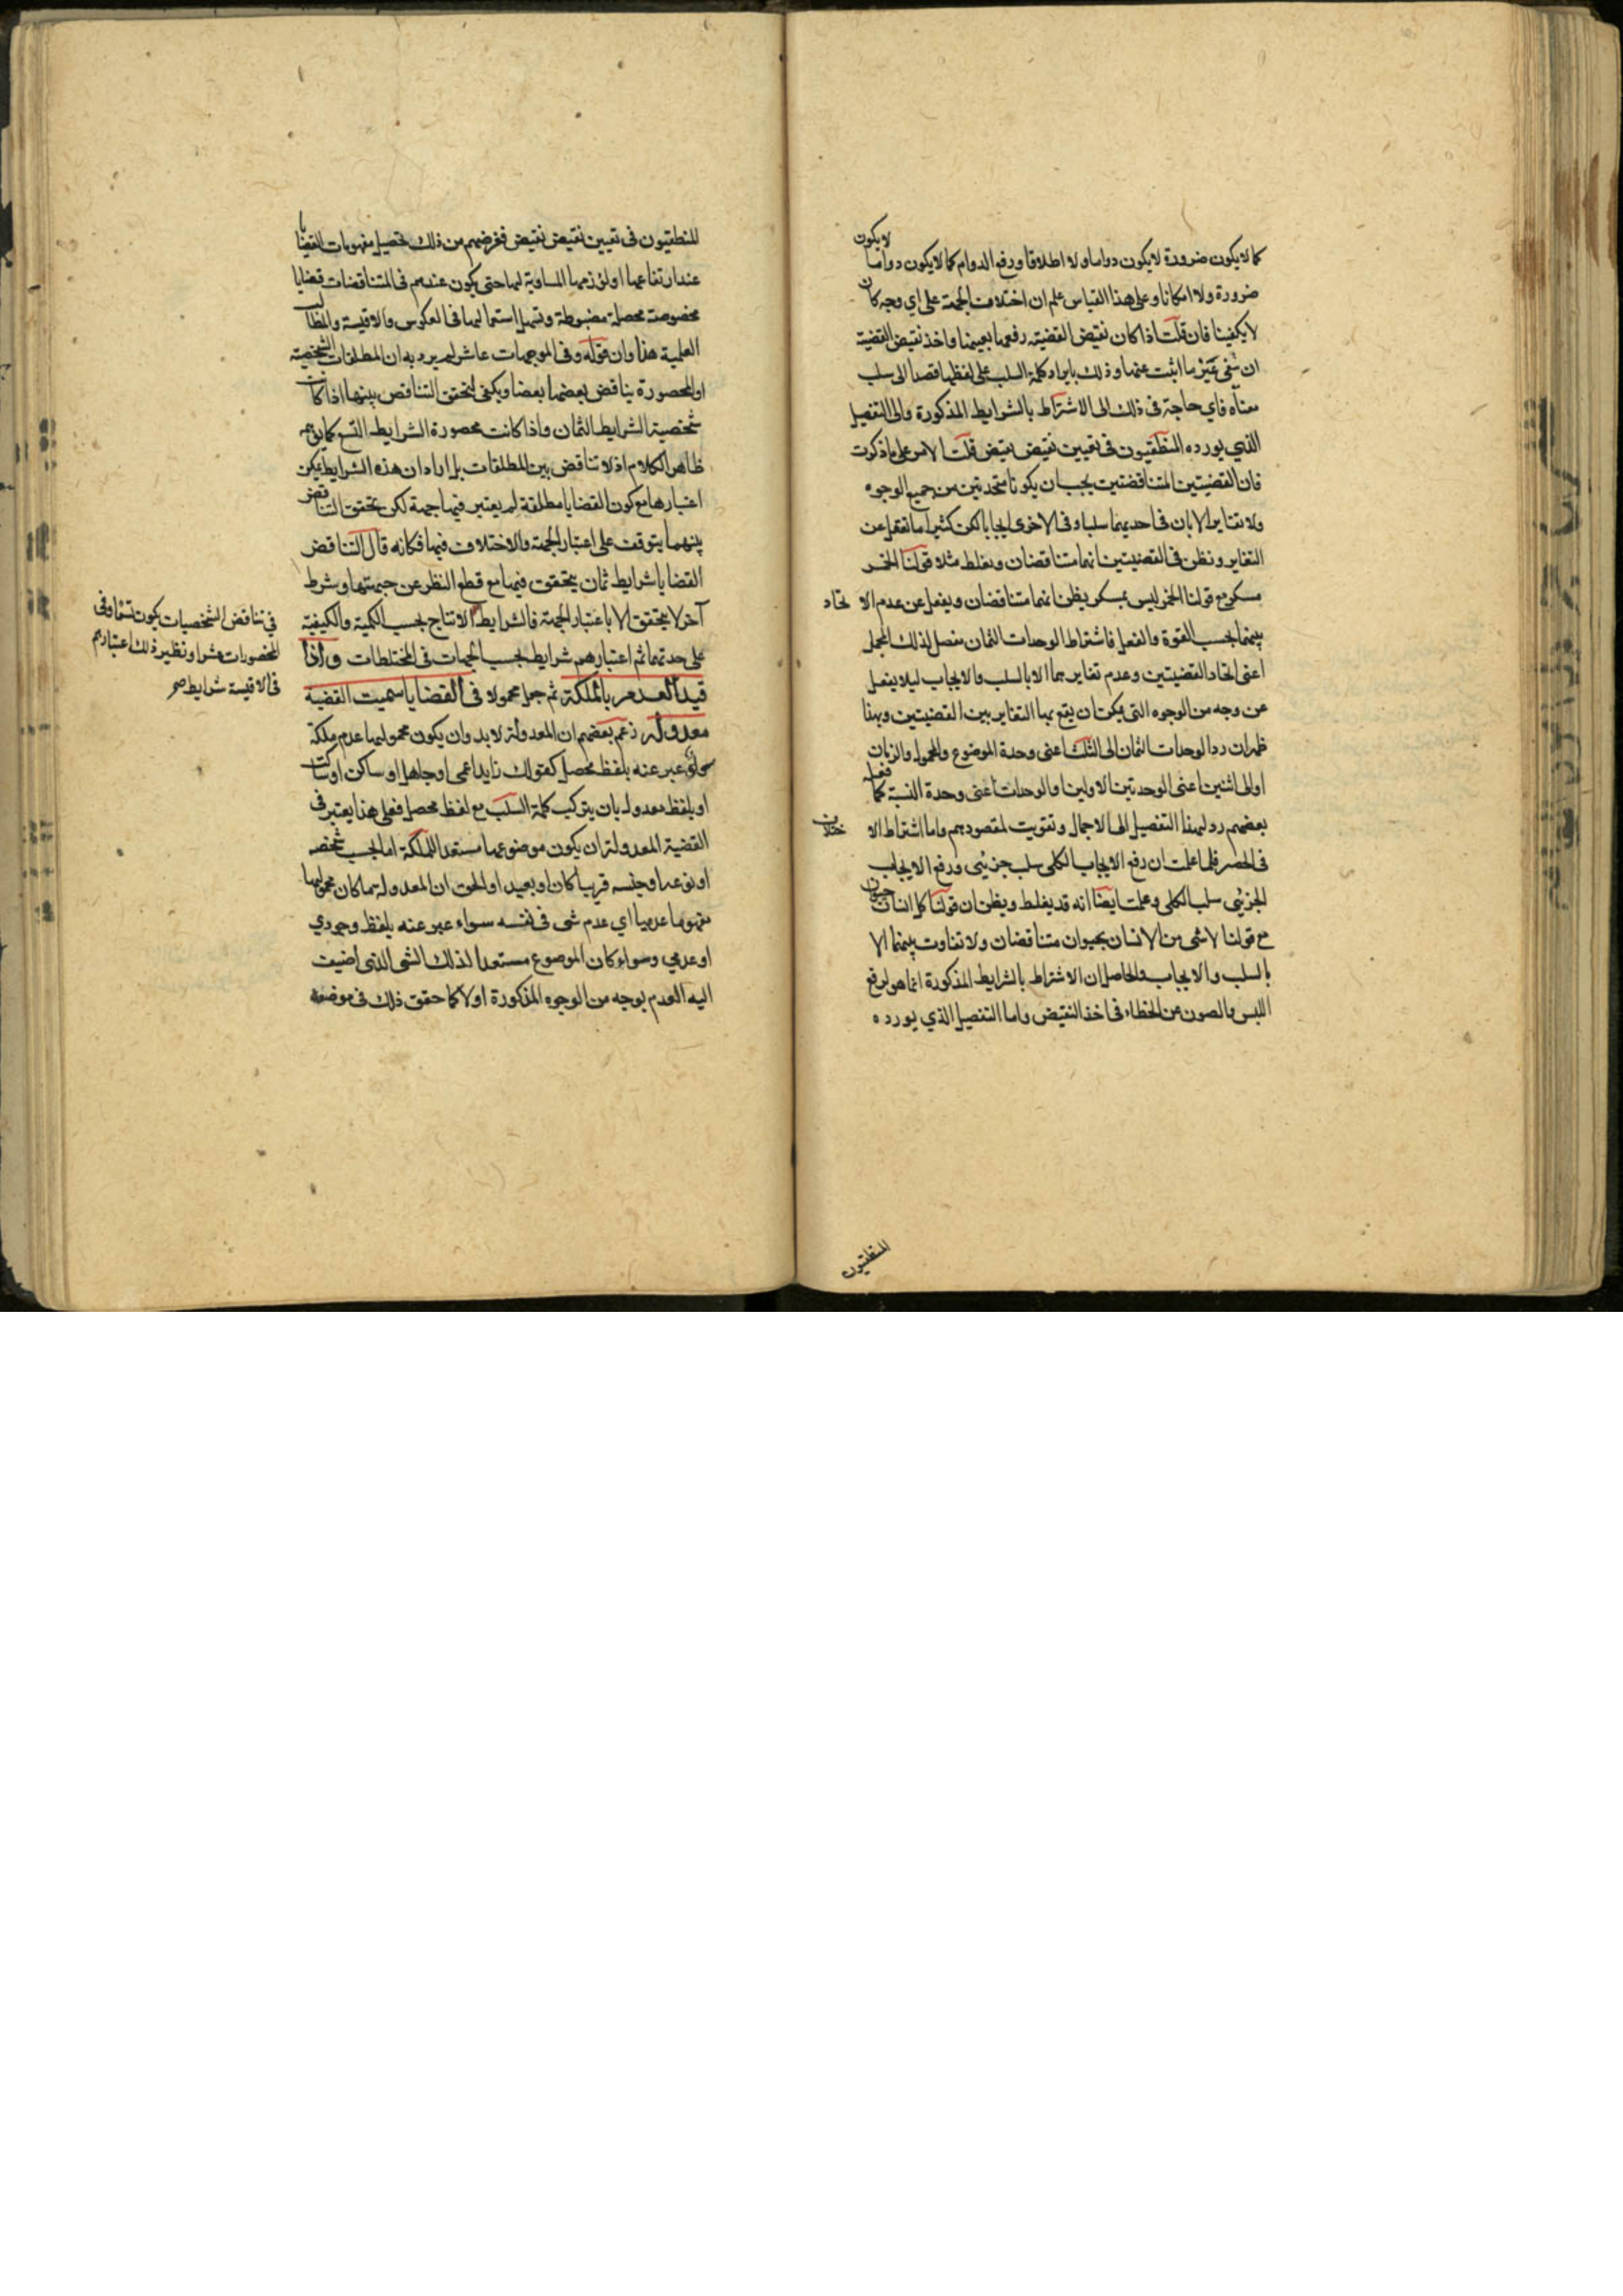 كما لا يكون ضرورة لا يكون دواما ولا اطلاقا ورفع الدوام كما لا يكون دواما لا يكون
ضرورة ولا امكانا وعلى هذا القياس علم ان اختلاف الجهة على اي وجه كان
لا يكفينا فان قلت اذا كان نقيض القضية رفعها بعينها واخذ نقيض القضية
ان ينفي عين ما اثبت عنها وذلك بايراد كلمة السلب على لفظها قصدا الى سلب
معناه فاي حاجة في ذلك الى الاشتراط بالشرايط المذكورة والى التفصيل
الذي يورده المنطقيون في تعيين نقيض نقيض قلت الامر على ما ذكرت
فان القضيتين المتناقضتين يجب ان يكونا متحدتين من جميع الوجوه
ولا تتغايرا الا بان في احديهما سلبا وفي الاخرى ايجابا لكن كثيرا ما نغفل عن
التغاير ونظن في القضيتين انهما متناقضان ونغلط مثلا قولنا الخمر
مسكر مع قولنا الخمر ليس بمسكر يظن انهما متناقضان ويغفل عن عدم الاتحاد
بينهما بحسب القوة والفعل فاشتراط الوحدات الثمان مفصل لذلك المجمل
اعنى اتحاد القضيتين وعدم تغايرهما الا بالسلب والايجاب ليلا يغفل
عن وجه من الوجوه التي يمكن ان يقع بها التغاير بين القضيتين وبهذا
ظهر ان رد الوحدات الثمان الى الثلث اعنى وحدة الموضوع والمحمول والزمان
او الى اثنين اعنى الوحدتين الاوليين او الوحدات اعنى وحدة النسبة كما فعله
بعضهم رد لهذا التفصيل الى الاجمال وتفويت لمقصودهم واما اشتراط الاختلاف
في الحصر فلما علمت ان رفع الايجاب الكلي سلب جزئي ورفع الايجاب
الجزئي سلب الكلي وعلمت ايضا انه قد يغلط ويظن ان قولنا كل انسان حيوان
مع قولنا لا شي من الانسان بحيوان متناقضان ولا تفاوت بينهما الا
بالسلب والايجاب والحاصل ان الاشتراط بالشرايط المذكورة انما هو لرفع
اللبس والصون عن الخطاء في اخذ النقيض واما التفصيل الذي يورده
المنطقيون
المنطقيون في تعيين نقيض نقيض فغرضهم من ذلك تحصيل مفهومات القضايا
عند ارتفاعها او لوزمها المساوية لها حتى يكون عندهم في المتناقضات قضايا
مخصوصة محصلة مضبوطة وتسهل استعمالها في العكوس والاقيسة والمطالب
العلمية هذا وان قوله وفي الموجهات عاشر لم يرد به ان المطلقات الشخصية
او المحصورة يناقض بعضها بعضا ويكفي لتحقق التناقض بينهما اذا كانت
شخصية الشرايط الثمان واذا كانت محصورة الشرايط التسع كما يوهم
ظاهر الكلام اذ لا تناقض بين المطلقات بل اراد ان هذه الشرايط يمكن
اعتبارها مع كون القضايا مطلقة لم يعتبر فيها جهة لكن تحقق التناقض
بينهما يتوقف على اعتبار الجهة والاختلاف فيها فكانه قال التناقض
القضايا شرايط ثمان يتحقق فيها مع قطع النظر عن جهتها وشرط
آخر لا يتحقق الا باعتبار الجهة فالشرايط الانتاج بحسب الكمية والكيفية
على حدتهما ثم اعتبارهم شرايط بحسب الجهات في المختلطات واذا
قيد العدم بالملكة ثم جعل محمولا في القضايا سميت القضية
معدولة زعم بعضهم ان المعدولة لا بد وان يكون محمولها عدم ملكة
سواء عبر عنه بلفظ محصل كقولك زايد اعمى او جاهل او ساكن او ساكت
او بلفظ معدول بان يتركب كلمة السلب مع لفظ محصل فعلى هذا يعتبر في
القضية المعدولة ان يكون موضوعها مستعدا للملكة اما بحسب شخصه
او نوعه او جنسه قريبا كان او بعيدا والحق ان المعدولة ما كان محمولها
مفهوما عدميا اي عدم شي في نفسه سواء عبر عنه بلفظ وجودي
او عدمي وسواء كان الموضوع مستعدا لذلك الشي الذي اضيف
اليه العدم بوجه من الوجوه المذكورة اولا كما حقق ذلك في موضعه
في تناقض الشخصيات يكون تسعا وفي
المحصورات عشرا ونظير ذلك اعتبارهم
في الاقيسة شرايط صح